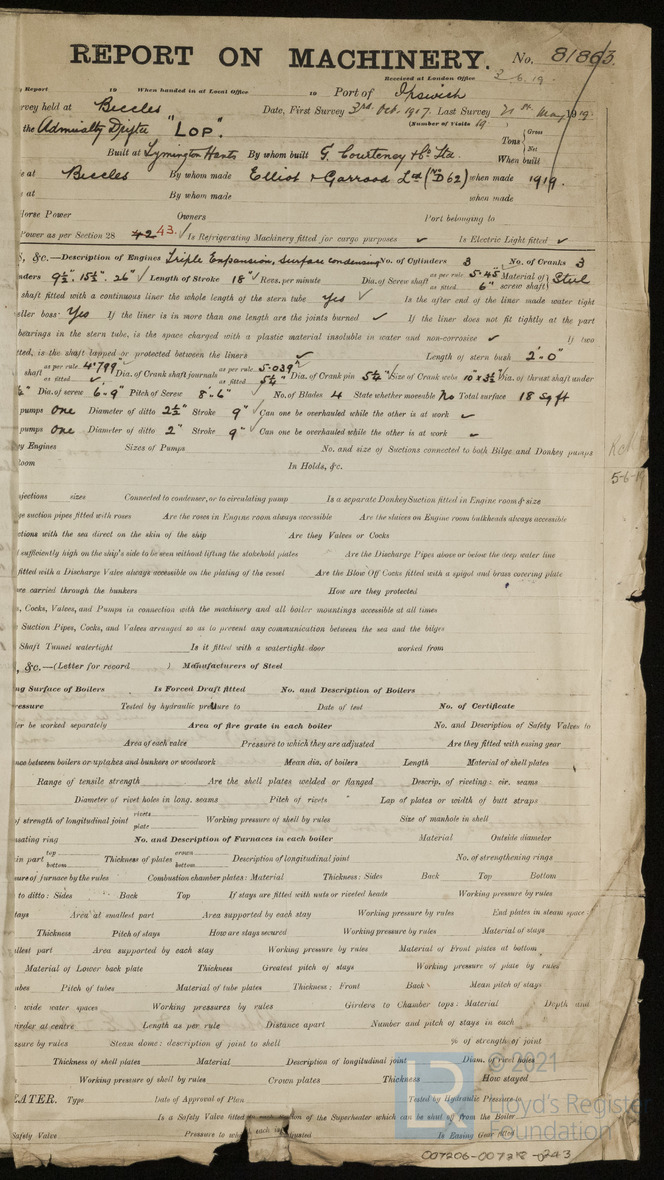 REPORT ON MACHINERY. No. 81863.
Received at London Office 2.6.19
Report 19 When handed in at Local Office 19 Port of Ipswich
survey held at Beccles Date, First Survey 3rd Oct. 1917. Last Survey 21st May 1919.
(Number of Visits 19)
the Admiralty Drifter "LOP". Tons { Gross Net
Built at Lymington Hants By whom built G. Courteney & Co Ltd. When built
at Beccles By whom made Elliot & Garrood Ltd (No D62) when made 1919.
at By whom made when made
Horse Power Owners Port belonging to
Power as per Section 28 42 43. ✓ Is Refrigerating Machinery fitted for cargo purposes ✓ Is Electric Light fitted ✓
S, &c.—Description of Engines Triple Expansion, Surface condensing No. of Cylinders 3 No. of Cranks 3
nders 9½". 15½". 26" ✓ Length of Stroke 18" ✓ Revs. per minute Dia. of Screw shaft as per rule 5.45 as fitted 6" Material of screw shaft } Steel
shaft fitted with a continuous liner the whole length of the stern tube Yes ✓ Is the after end of the liner made water tight
eller boss. Yes If the liner is in more than one length are the joints burned ✓ If the liner does not fit tightly at the part
bearings in the stern tube, is the space charged with a plastic material insoluble in water and non-corrosive ✓ If two
ted, is the shaft lapped or protected between the liners ✓ Length of stern bush 2'-0"
shaft as per rule 4.799" as fitted ✓ Dia. of Crank shaft journals as per rule 5.039" as fitted 5¼" Dia. of Crank pin 5¼" ✓ Size of Crank webs 10" x 3½" Dia. of thrust shaft under
½" Dia. of screw 6'-9" Pitch of Screw 8'-6" No. of Blades 4 State whether moveable No Total surface 18 sq ft
pumps one Diameter of ditto 2½" Stroke 9" ✓ Can one be overhauled while the other is at work ✓
pumps one Diameter of ditto 2" Stroke 9" ✓ Can one be overhauled while the other is at work ✓
y Engines Sizes of Pumps No. and size of Suctions connected to both Bilge and Donkey pumps
Room In Holds, &c.
5-6-19
jections sizes Connected to condenser, or to circulating pump Is a separate Donkey Suction fitted in Engine room & size
ge suction pipes fitted with roses Are the roses in Engine room always accessible Are the sluices on Engine room bulkheads always accessible
ctions with the sea direct on the skin of the ship Are they Valves or Cocks
sufficiently high on the ship's side to be seen without lifting the stokehold plates Are the Discharge Pipes above or below the deep water line
fitted with a Discharge Valve always accessible on the plating of the vessel Are the Blow Off Cocks fitted with a spigot and brass covering plate
are carried through the bunkers How are they protected
s, Cocks, Valves, and Pumps in connection with the machinery and all boiler mountings accessible at all times
Suction Pipes, Cocks, and Valves arranged so as to prevent any communication between the sea and the bilges
Shaft Tunnel watertight Is it fitted with a watertight door worked from
, &c.—(Letter for record ) Manufacturers of Steel
ng Surface of Boilers Is Forced Draft fitted No. and Description of Boilers
ressure Tested by hydraulic pressure to Date of test No. of Certificate
ler be worked separately Area of fire grate in each boiler No. and Description of Safety Valves to
Area of each valve Pressure to which they are adjusted Are they fitted with easing gear
nce between boilers or uptakes and bunkers or woodwork Mean dia. of boilers Length Material of shell plates
Range of tensile strength Are the shell plates welded or flanged Descrip. of riveting: cir. seams
Diameter of rivet holes in long. seams Pitch of rivets Lap of plates or width of butt straps
of strength of longitudinal joint rivets plate Working pressure of shell by rules Size of manhole in shell
nsating ring No. and Description of Furnaces in each boiler Material Outside diameter
in part top bottom Thickness of plates crown bottom Description of longitudinal joint No. of strengthening rings
sure of furnace by the rules Combustion chamber plates: Material Thickness: Sides Back Top Bottom
to ditto: Sides Back Top If stays are fitted with nuts or riveted heads Working pressure by rules
stays Area at smallest part Area supported by each stay Working pressure by rules End plates in steam space:
Thickness Pitch of stays How are stays secured Working pressure by rules Material of stays
allest part Area supported by each stay Working pressure by rules Material of Front plates at bottom
Material of Lower back plate Thickness Greatest pitch of stays Working pressure of plate by rules
ubes Pitch of tubes Material of tube plates Thickness: Front Back Mean pitch of stays
wide water spaces Working pressures by rules Girders to Chamber tops: Material Depth and
irder at centre Length as per rule Distance apart Number and pitch of stays in each
ssure by rules Steam dome: description of joint to shell % of strength of joint
Thickness of shell plates Material Description of longitudinal joint Diam. of rivet holes
Working pressure of shell by rules Crown plates Thickness How stayed
EATER. Type Date of Approval of Plan Tested by Hydraulic Pressure
Is a Safety Valve fitted on of the Superheater which can be shut off from the Boiler
Safety Valve Pressure to wh each is adjusted Is Easing Gear fitted
© 2021
Lloyd's Register
Foundation
007206-007218-0243